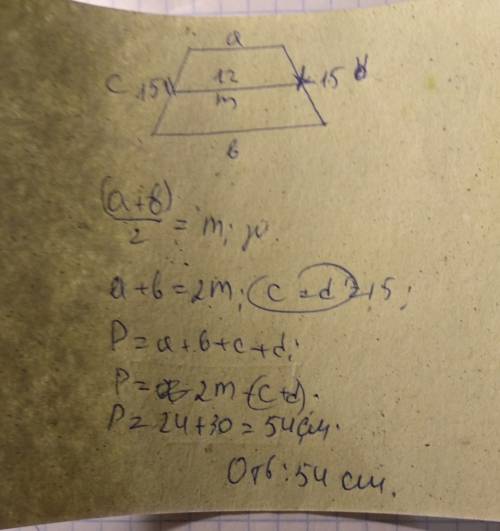 a
12
C 15 15 d
m
b
(a+b)/2 = m;
a+b=2m; c=d=15;
P=a+b+c+d;
P= 2m+(c+d).
P=24+30=54см.
Отв: 54 см.